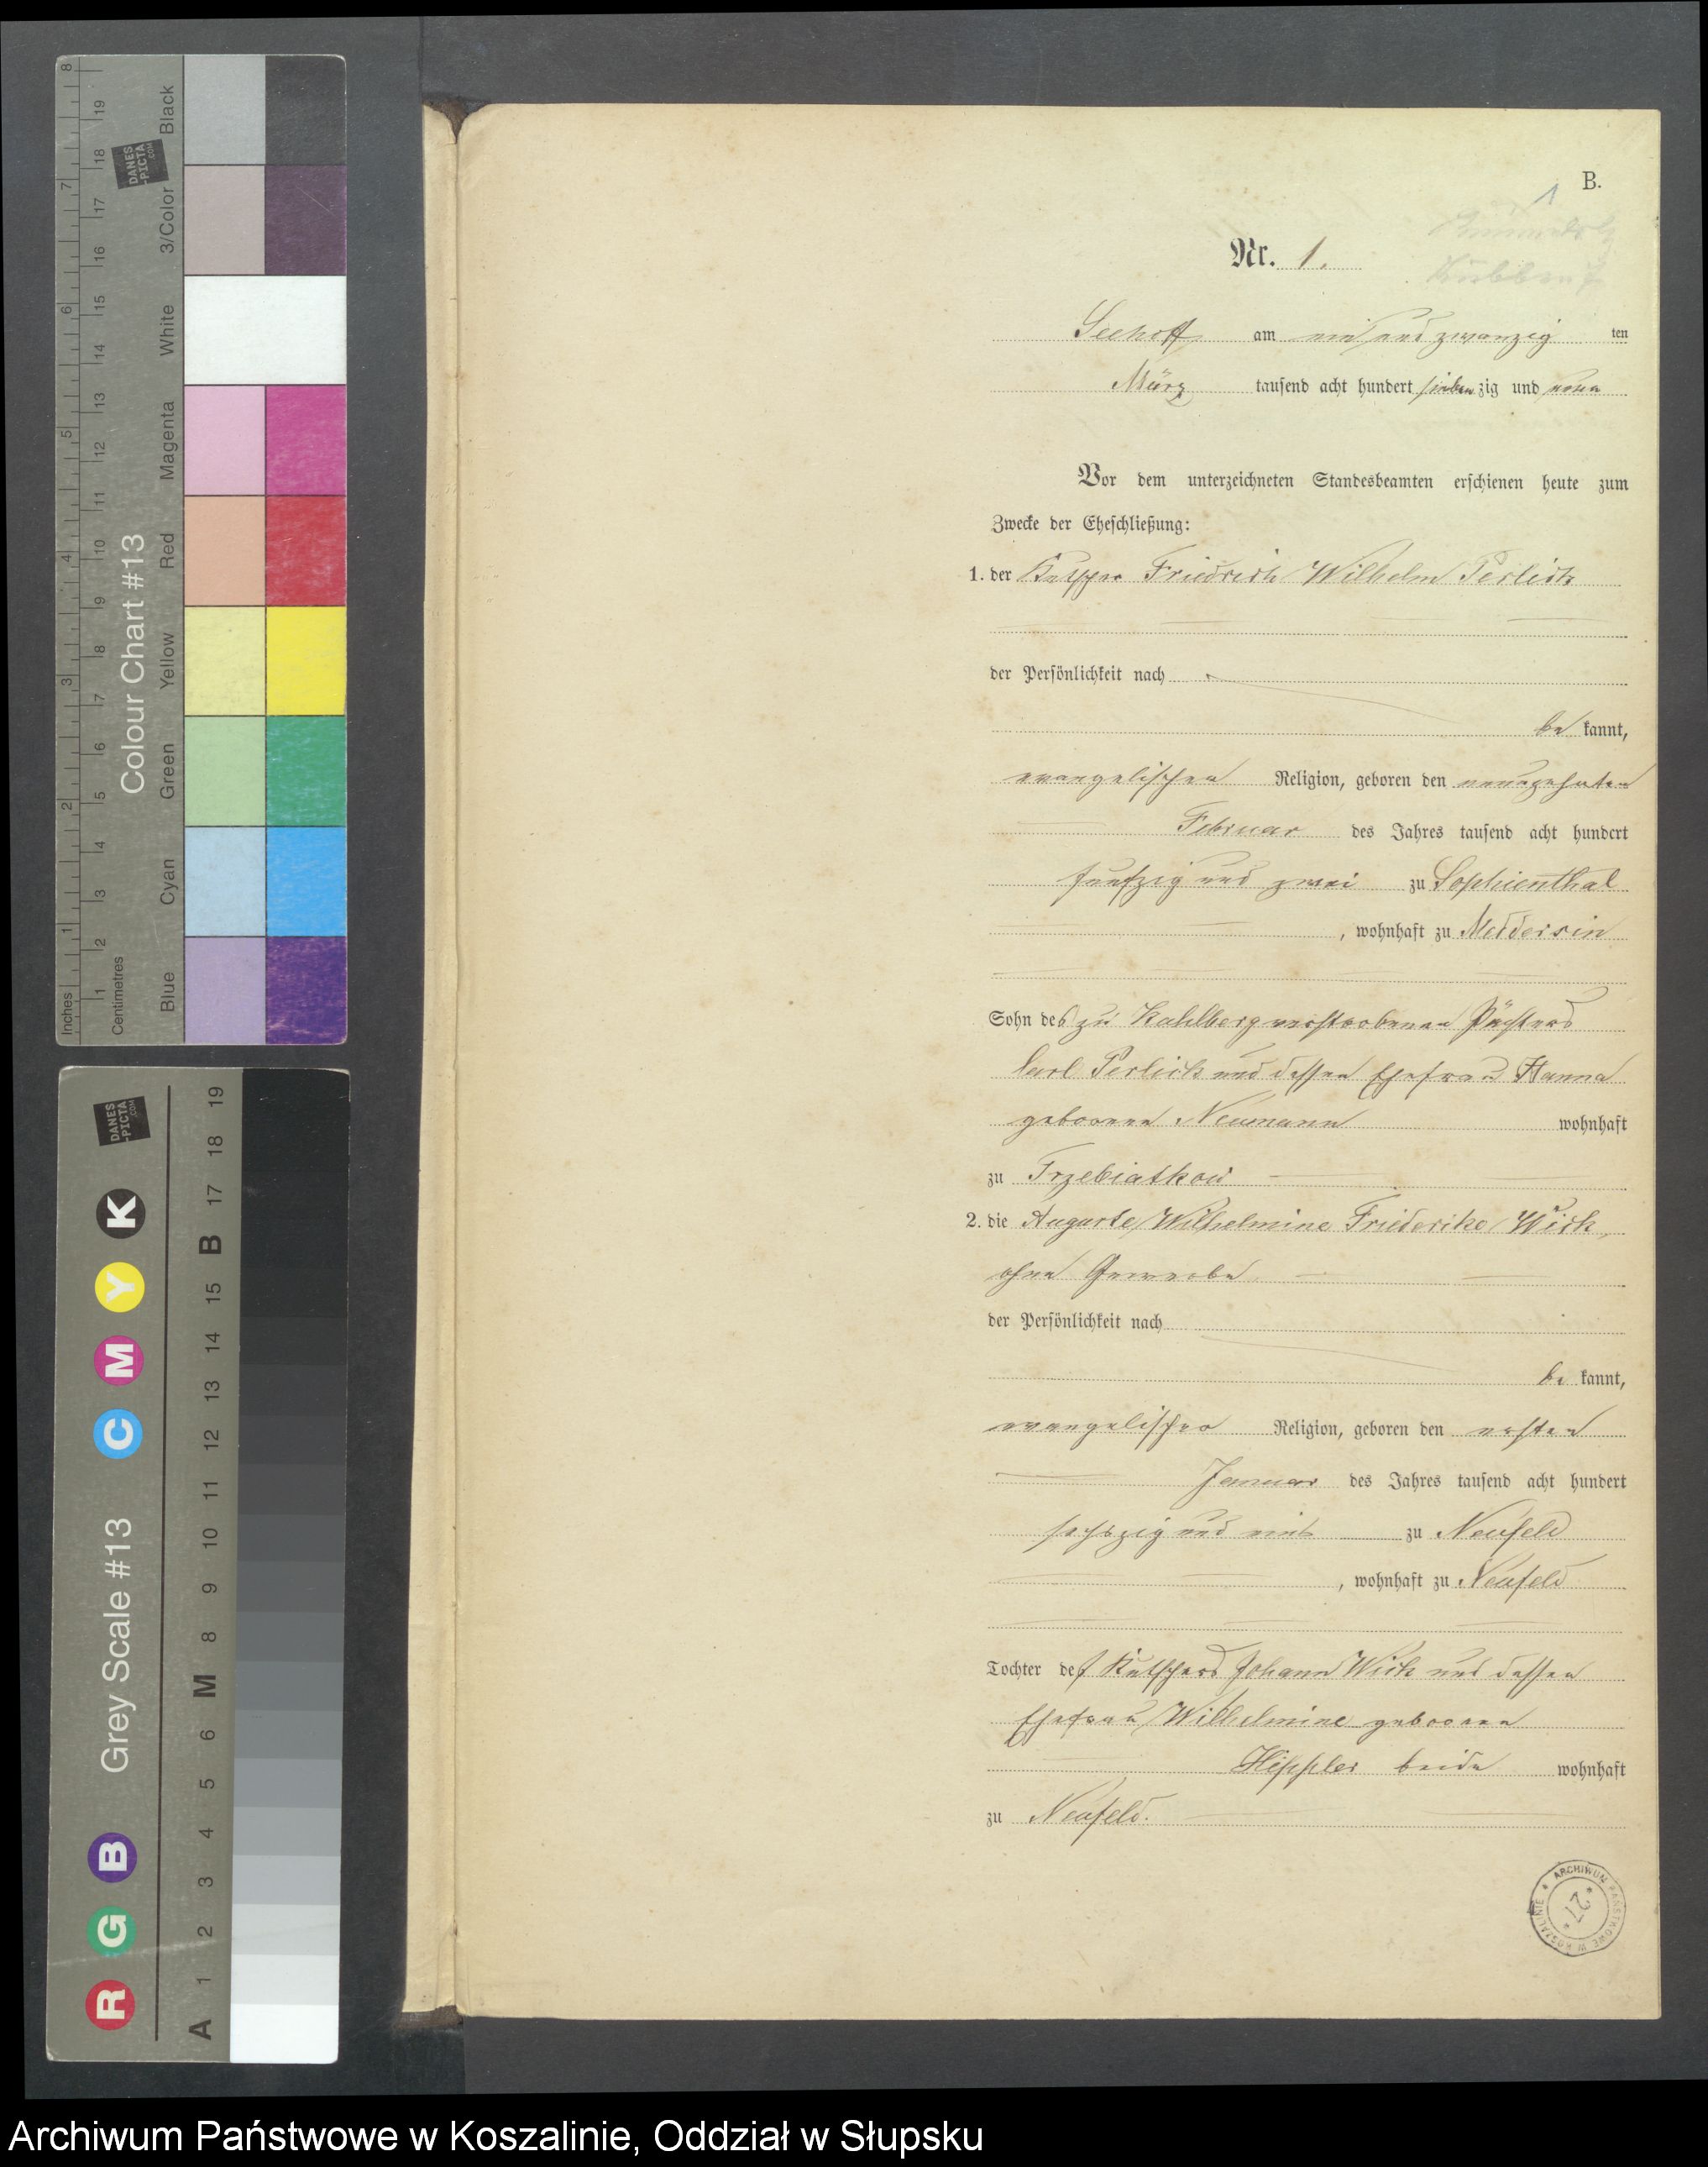 B.
1
Nr. 1.
Seehoff am ein und zwanzig ten
März tausend acht hundert sieben zig und neun
Vor dem unterzeichneten Standesbeamten erschienen heute zum
Zwecke der Eheschließung:
1. der Kutscher Friedrich Wilhelm Perlick
der Persönlichkeit nach
be kannt,
evangelischen Religion, geboren den neunzehnten
Februar des Jahres tausend acht hundert
funfzig und zwei zu Sophienthal
, wohnhaft zu Meddersin
Sohn des zu Kahlberg verstorbenen Pächters
Carl Perlick und dessen Ehefrau Hanna
geborene Neumann wohnhaft
zu Trzebiatkow
2. die Auguste Wilhelmine Friederike Wick,
ohne Gewerbe
der Persönlichkeit nach
be kannt,
evangelischer Religion, geboren den ersten
Januar des Jahres tausend acht hundert
sechszig und eins zu Neufeld
, wohnhaft zu Neufeld
Tochter des Kutschers Johann Wick und dessen
Ehefrau Wilhelmine geborene
Hippler beide wohnhaft
zu Neufeld.
ARCHIWUM PAŃSTWOWE W KOSZALINIE
27
Inches
1 2 3 4 5 6 7 8
Centimetres
1 2 3 4 5 6 7 8 9 10 11 12 13 14 15 16 17 18 19
Colour Chart #13
Blue Cyan Green Yellow Red Magenta White 3/Color Black
DANES
-PICTA
.COM
R G B Grey Scale #13 C M Y K
DANES
-PICTA
.COM
A 1 2 3 4 5 6 M 8 9 10 11 12 13 14 15 B 17 18 19
Archiwum Państwowe w Koszalinie, Oddział w Słupsku